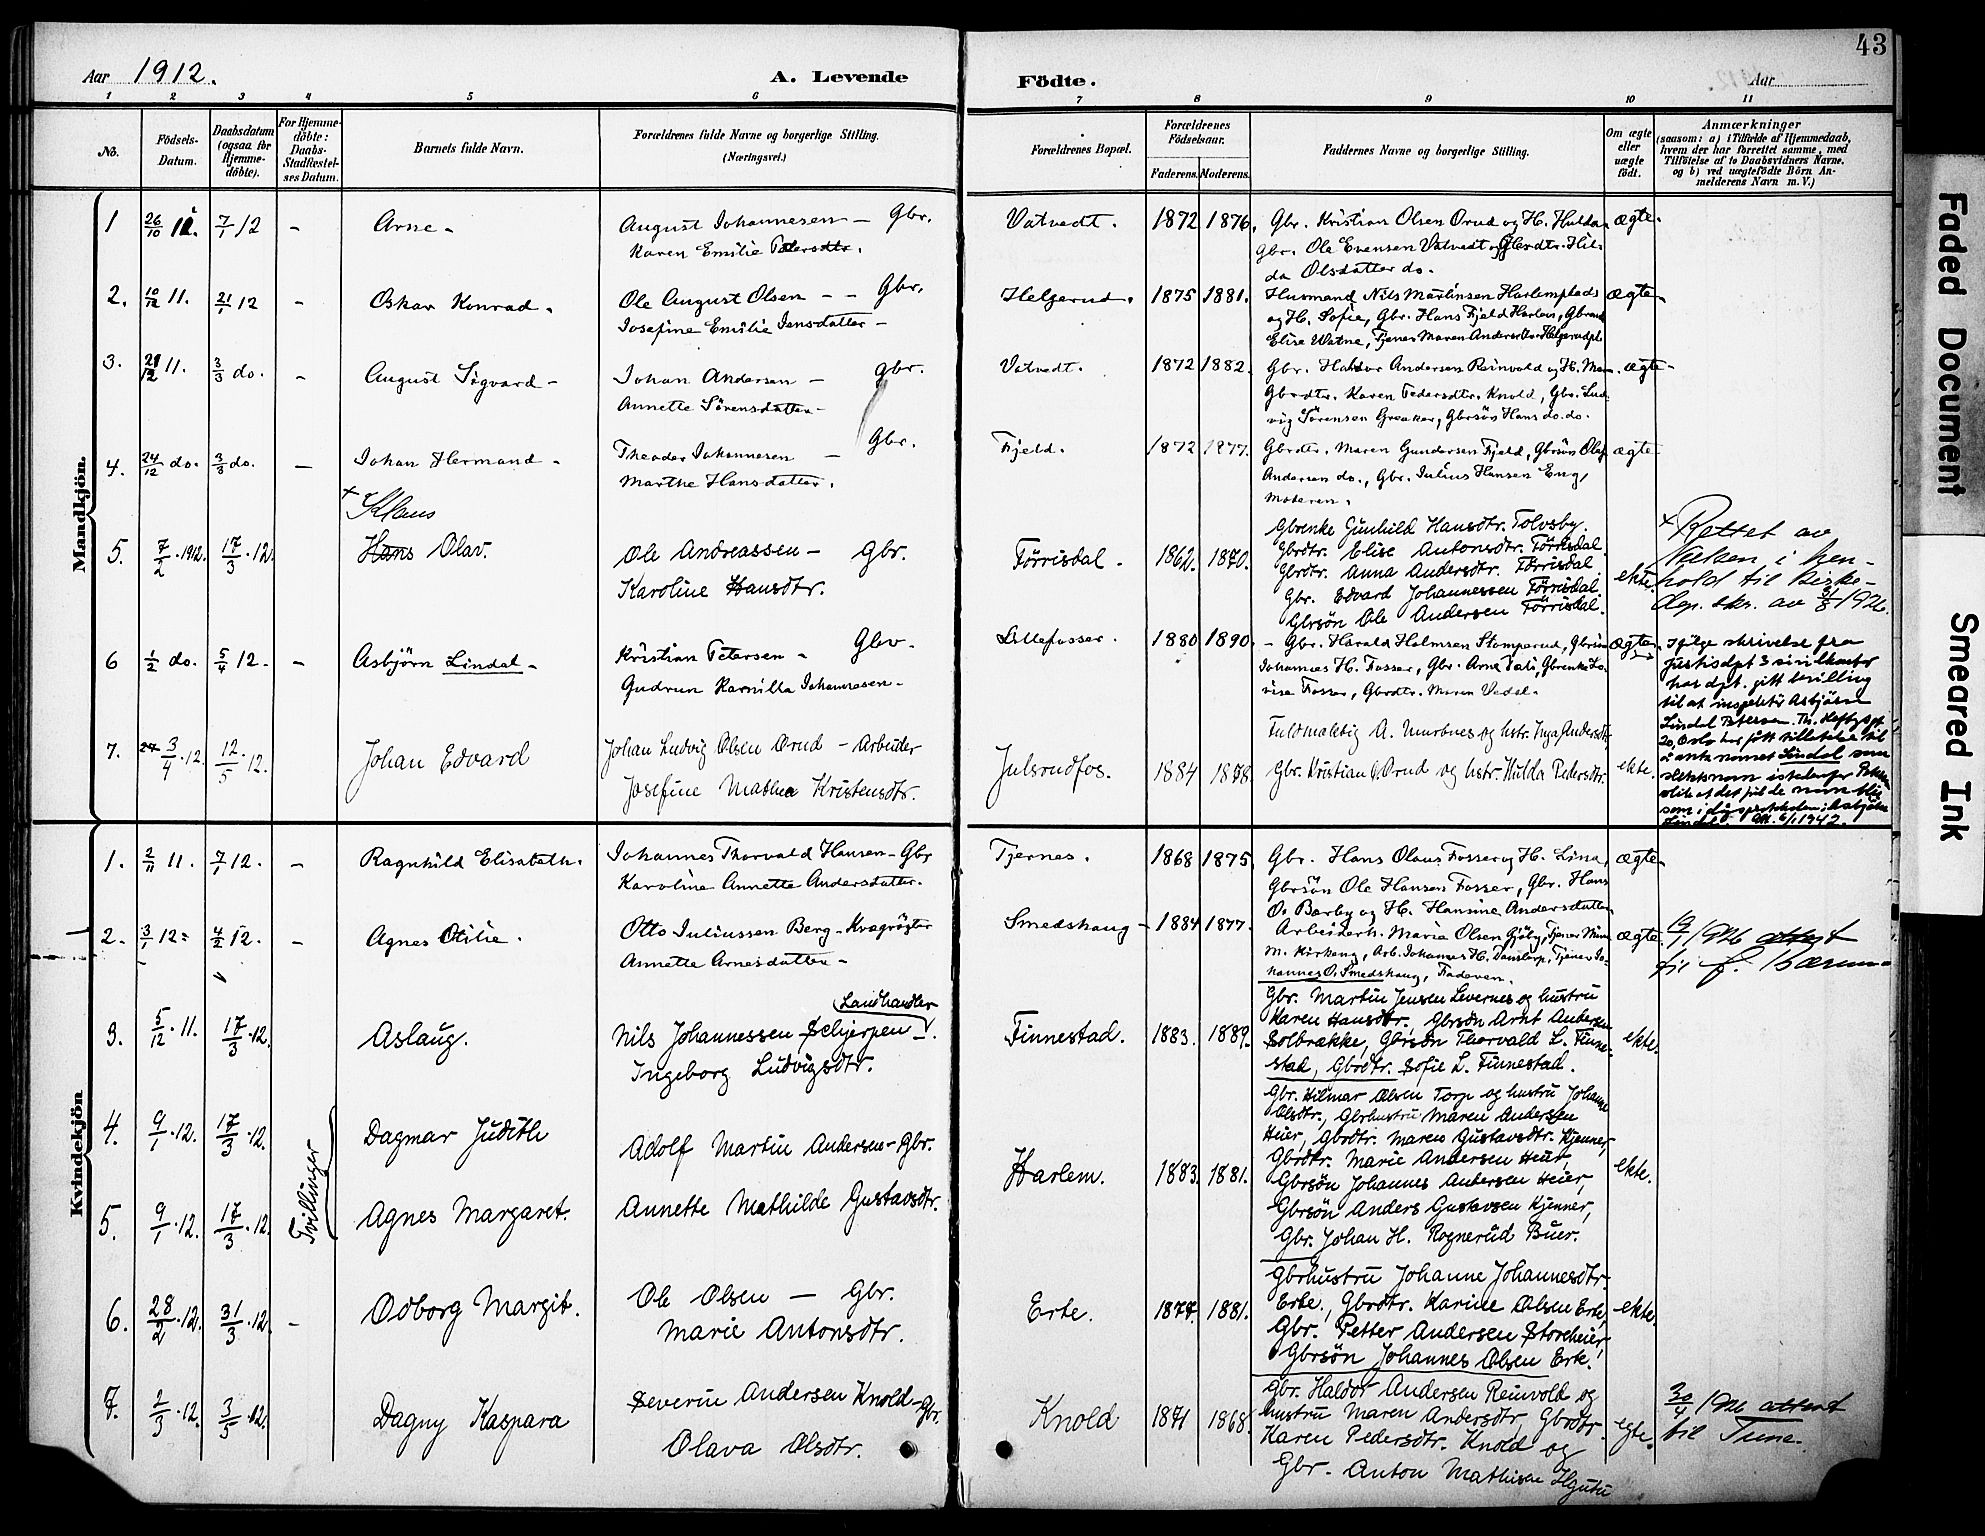 43
Aar 1912.
A. Levende Födte.
Aar
1 2 3 4 5 6 7 8 9 10 11
No.
Födsels-Datum.
Daabsdatum (ogsaa for Hjemme-döbte).
For Hjemme-döbte: Daabs-Stadfæstel-ses Datum.
Barnets fulde Navn.
Forældrenes fulde Navne og borgerlige Stilling. (Næringsvei.)
Forældrenes Bopæl.
Forældrenes Födselsaar.
Faderens. Moderens.
Faddernes Navne og borgerlige Stilling.
Om ægte eller uægte födt.
Anmærkninger
(saasom: a) i Tilfælde af Hjemmedaab,
hvem der har forrettet samme, med
Tilföielse af to Daabsvidners Navne,
og b) ved uægtefödte Börn An-
melderens Navn m. V.)
Mandkjön.
1 26/10 11. 7/1 12 - Arne - August Johannesen - Gbr. Vatvedt. 1872 1876. Gbr. Kristian Olsen Ørud og H. Hulda ægte-
Karen Emilie Pedersdtr. Gbr. Ole Evensen Vatvedt og Gbrdtr. Hil-
da Olsdatter do.
2. 10/12 11. 21/1 12 - Oskar Konrad. Ole August Olsen - - Gbr. Helgerud. 1875 1881. Husmand Nils Martinsen Harlemplads ægte-
Josefine Emilie Jensdatter - og H. Sofie, Gbr. Hans Fjeld Harlem,
Elise Watne, Tjener Maren
3. 29/12 11. 3/3 do. - August Sigvard - Johan Andersen - Gbr. Vatvedt. 1872 1882. Gbr. Haldor Andersen Reinvold og H. Mar- ægte-
Annette Sørensdatter - Gbrdtr. Karen Pedersdtr. Knold, Gbr. Lud-
vig Sørensen Greaker, Gbrsön Hans do. do.
4. 24/12 do. 3/3 do. - Johan Hermand - Theodor Johannesen - Gbr. Fjeld. 1872 1877. Gbrdtr. Maren Gundersen Fjeld, Gbrsön Olaf ægte
Marthe Hansdatter. Andersen do., Gbr. Julius Hansen Eng,
Moderen.
× Klaus
5. 7/2 . 1912. 17/3 . 12. Hans Olav. Ole Andreassen - Gbr. Törrisdal. 1862. 1870. Gbrenke Gunhild Hansdtr. Tolvsby. ekte.
Karoline Hansdtr. Gbrdtr. Elise Antonsdtr. Törrisdal.
Gbrdtr. Anna Andersdtr. Törrisdal.
Gbr. Edvard Johannessen Törrisdal.
Gbrsön Ole Andersen Törrisdal.
× Rettet av
i hen-
hold til kirke-
dep. skr. av 31/8 1926.
6 1/2 do. 5/4 12. - Asbjörn Lindal - Kristian Petersen - Gbr. Lillefosser. 1880 1890. - Gbr. Harald Holmsen Stomperud, Gbrsön ægte
Gudrun Karnilla Johannesen - Johannes H. Fosser, Gbr. Arne Dali, Gbrenke Lo-
vise Fosser, Gbrdtr. Maren Vedel.
Ifølge skrivelse fra
justisdpt 3 sivilkontor
har dpt. gitt bevilling
til at inspektör Asbjörn
Lindal Petersen, Th. Heftyspl.
20, Oslo har fått tillatelse til
å anta navnet Lindal som
slektsnavn istedenfor Petersen
slik at det fulde navn blir
som i dåpsprotokollen: Asbjörn
Lindal. 6/1 1942.
7. 3/4 . 12. 12/5 . 12. Johan Edvard Johan Ludvig Olsen Ørud - Arbeider Julsrudfos. 1884 1878. Fuldmæktig A. og hstr. Inga Andersdtr. ekte.
Josefine Mathea Kristensdtr. Gbr. Kristian O. Ørud og hstr. Hulda Pedersdtr.
Kvindekjön
1. 2/11 11. 7/1 12. - Ragnhild Elisabeth. Johannes Thorvald Hansen - Gbr Tjernes. 1868 1875. Gbr. Hans Olaus Fosser og H. Lina, ægte-
Karoline Annette Andersdatter. Gbrsön Ole Hansen Fosser, Gbr. Hans
O. Barby og H. Hansine Andersdatter
2. 3/1 12. 4/2 12. - Agnes Otilie. Otto Juliussen Berg - Kvægrögter Smedshaug - 1884 1877. Arbeiderh. Maria Olsen Gjöby, Tjener ægte.
Annette Arnesdatter - m. Kirkeng, Arb. Johannes H. Damstorp, Tjener Jo-
hannes O. Smedshaug, Faderen.
19/1 1926 attest
til f. Bærum
3. 5/12 . 11. 17/3 . 12. Aslaug. Nils Johannessen Schjerpen - Landhandler Finnestad. 1883. 1889. Gbr. Martin Jensen Levernes og hustru ekte.
Ingeborg Ludvigsdtr. Karen Hansdtr., Gbrsön Arnt Andersen
Solbrække, Gbrsön Thorvald L. Finne-
stad, Gbrdtr. Sofie L. Finnestad.
Tvillinger
4. 9/1 . 12. 17/3 . 12. Dagmar Judith Adolf Martin Andersen - Gbr. Harlem. 1883. 1881. Gbr. Hilmar Olsen Torp og hustru Johanne ekte.
Olsdtr., Gbrhustru Maren Andersen
Heier, Gbrdtr. Maren Gustavsdtr. Kjenner,
Gbrdtr. Marie Andersen Heier,
5. 9/1 . 12. 17/3 . 12. Agnes Margaret. Annette Mathilde Gustavsdtr. Gbrsön Johannes Andersen Heier,
Gbrsön Anders Gustavsen Kjenner,
Gbr. Johan H. Rognerud Buer.
6. 28/2 . 12. 31/3 . 12. - Odborg Margit. Ole Olsen - Gbr. Erte. 1877. 1881. Gbrhustru Johanne Johannesdtr. ekte.
Marie Antonsdtr. Erte, Gbrdtr. Karine Olsen Erte,
Gbr. Petter Andersen Storeheier,
Gbrsön Johannes Olsen Erte.
7. 2/3 . 12. 3/5 . 12. Dagny Kaspara Severin Andersen Knold - Gbr. Knold 1871 1868. Gbr. Haldor Andersen Reinvold og egte.
Olava Olsdtr. hustru Maren Andersdtr, Gbrdtr.
Karen Pedersdtr. Knold og
Gbr. Anton Mathisen
30/4 1926 attest
til Tune.
Faded Document
Smeared Ink